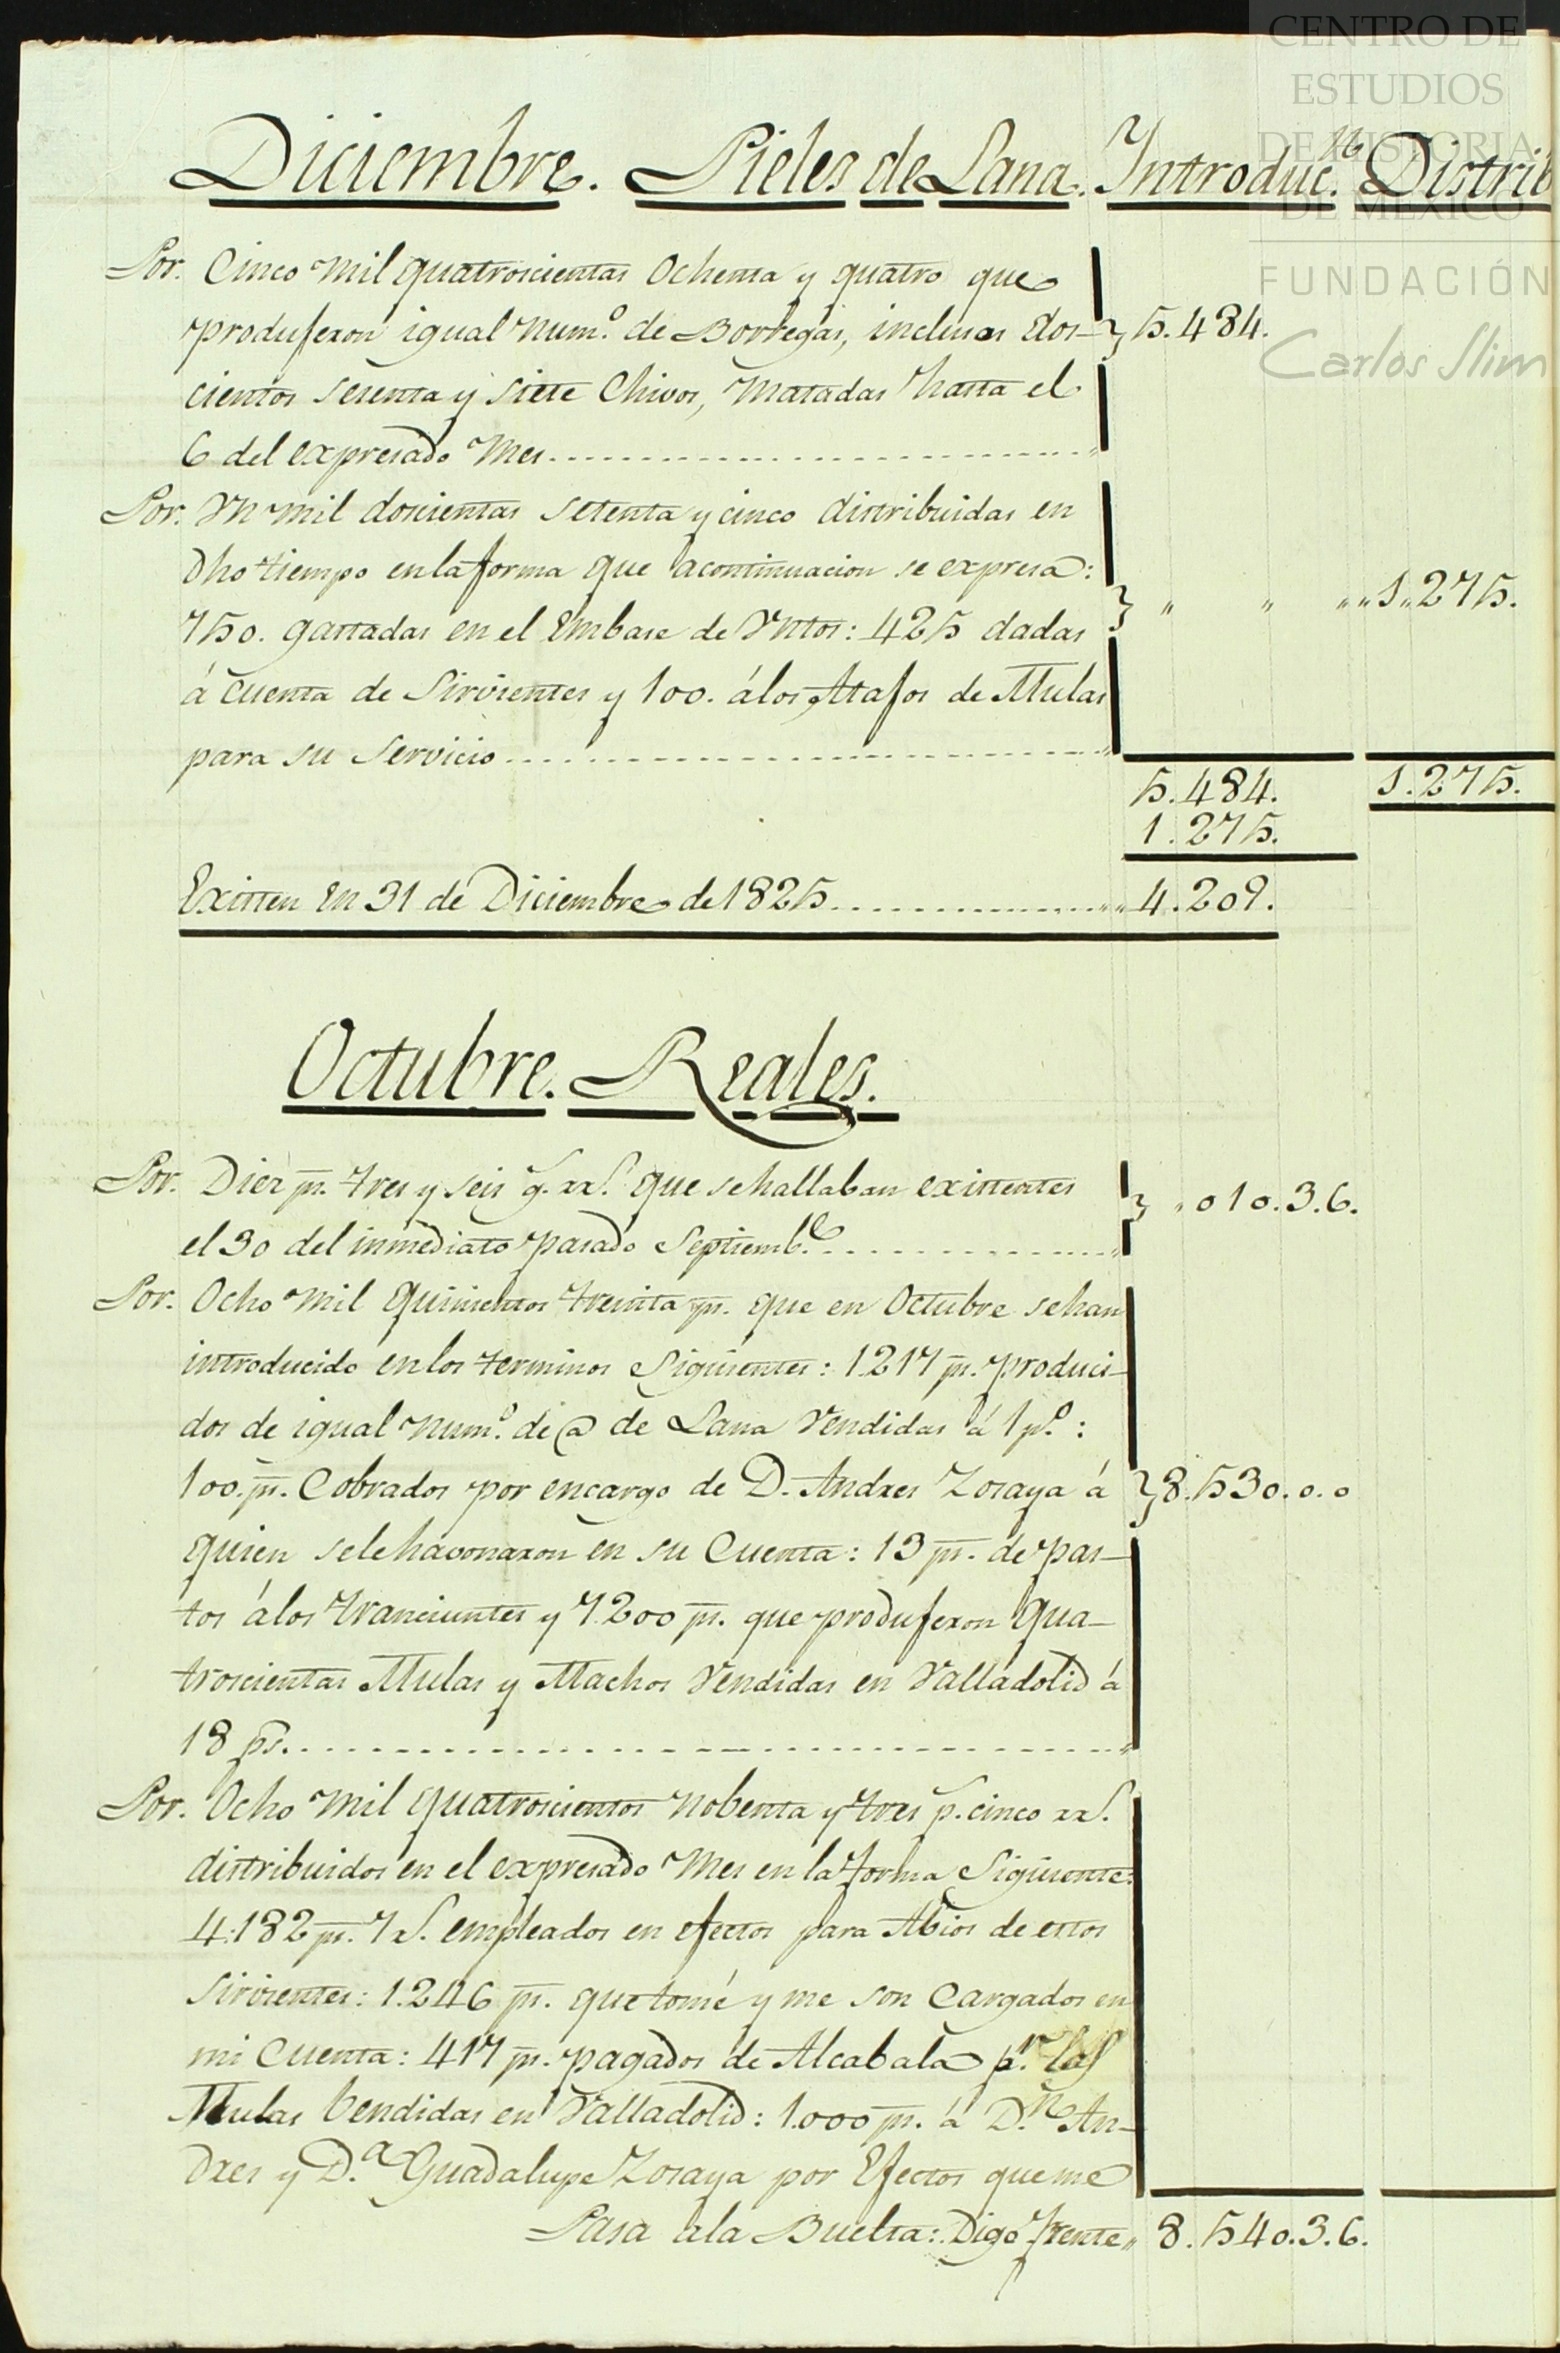 CENTRO DE
ESTUDIOS
DE HISTORIA
DE MEXICO
FUNDACIÓN
Carlos Slim
16
Diciembre. Pieles de Lana. Introduc. Distrib
Por. Cinco mil quatrocientas Ochenta y quatro que
produjeron igual Num.º de Borregas, inclusas dos- 5.484.
cientos sesenta y siete Chivos, Matadas hasta el
6 del expresado Mes
Por. Un mil doscientas setenta y cinco distribuidas en
dho tiempo en la forma que acontinuacion se expresa:
750. gastadas en el Embase de Untos: 425 dadas " " "" 1,,275.
á cuenta de Sirvientes y 100. álos Atajos de Mulas
para su servicio
5.484. 1.275.
1.275.
Existen En 31 de Diciembre de 1825 4.209.
Octubre. Reales.
Por. Diez ps. tres y seis g. rrs. que se hallaban existentes " 010.3.6.
el 30 del inmediato pasado Septiemb.e
Por. Ocho mil quinientos treinta ps. que en Octubre se han
introducido en los terminos Siguientes: 1.217 ps. produci-
dos de igual Num.º de @ de Lana Vendidas á 1 p.º:
100. ps. Cobrados por encargo de D. Andres Zosaya á 8.530.0.0
quien sele havonaron en su Cuenta: 13 ps. de pas-
tos álos tranciuntes y 7.200 ps. que produjeron qua-
troscientas Mulas y Machos Vendidas en Valladolid á
18 ps.
Por. Ocho mil quatroscientos nobenta y tres p. cinco rrs.
distribuidos en el expresado Mes en la forma Siguiente:
4.182 ps. 7 rs. empleados en efectos para Abios de estos
sirvientes: 1.246 ps. que tomé y me son Cargados en
mi Cuenta: 417 ps. pagados de Alcabala p.r las
Mulas bendidas en Valladolid: 1.000 ps. á D.n An-
dres y D.a Guadalupe Zosaya por Efectos que me
Pasa ala Buelta: Digo frente " 8.540.3.6.